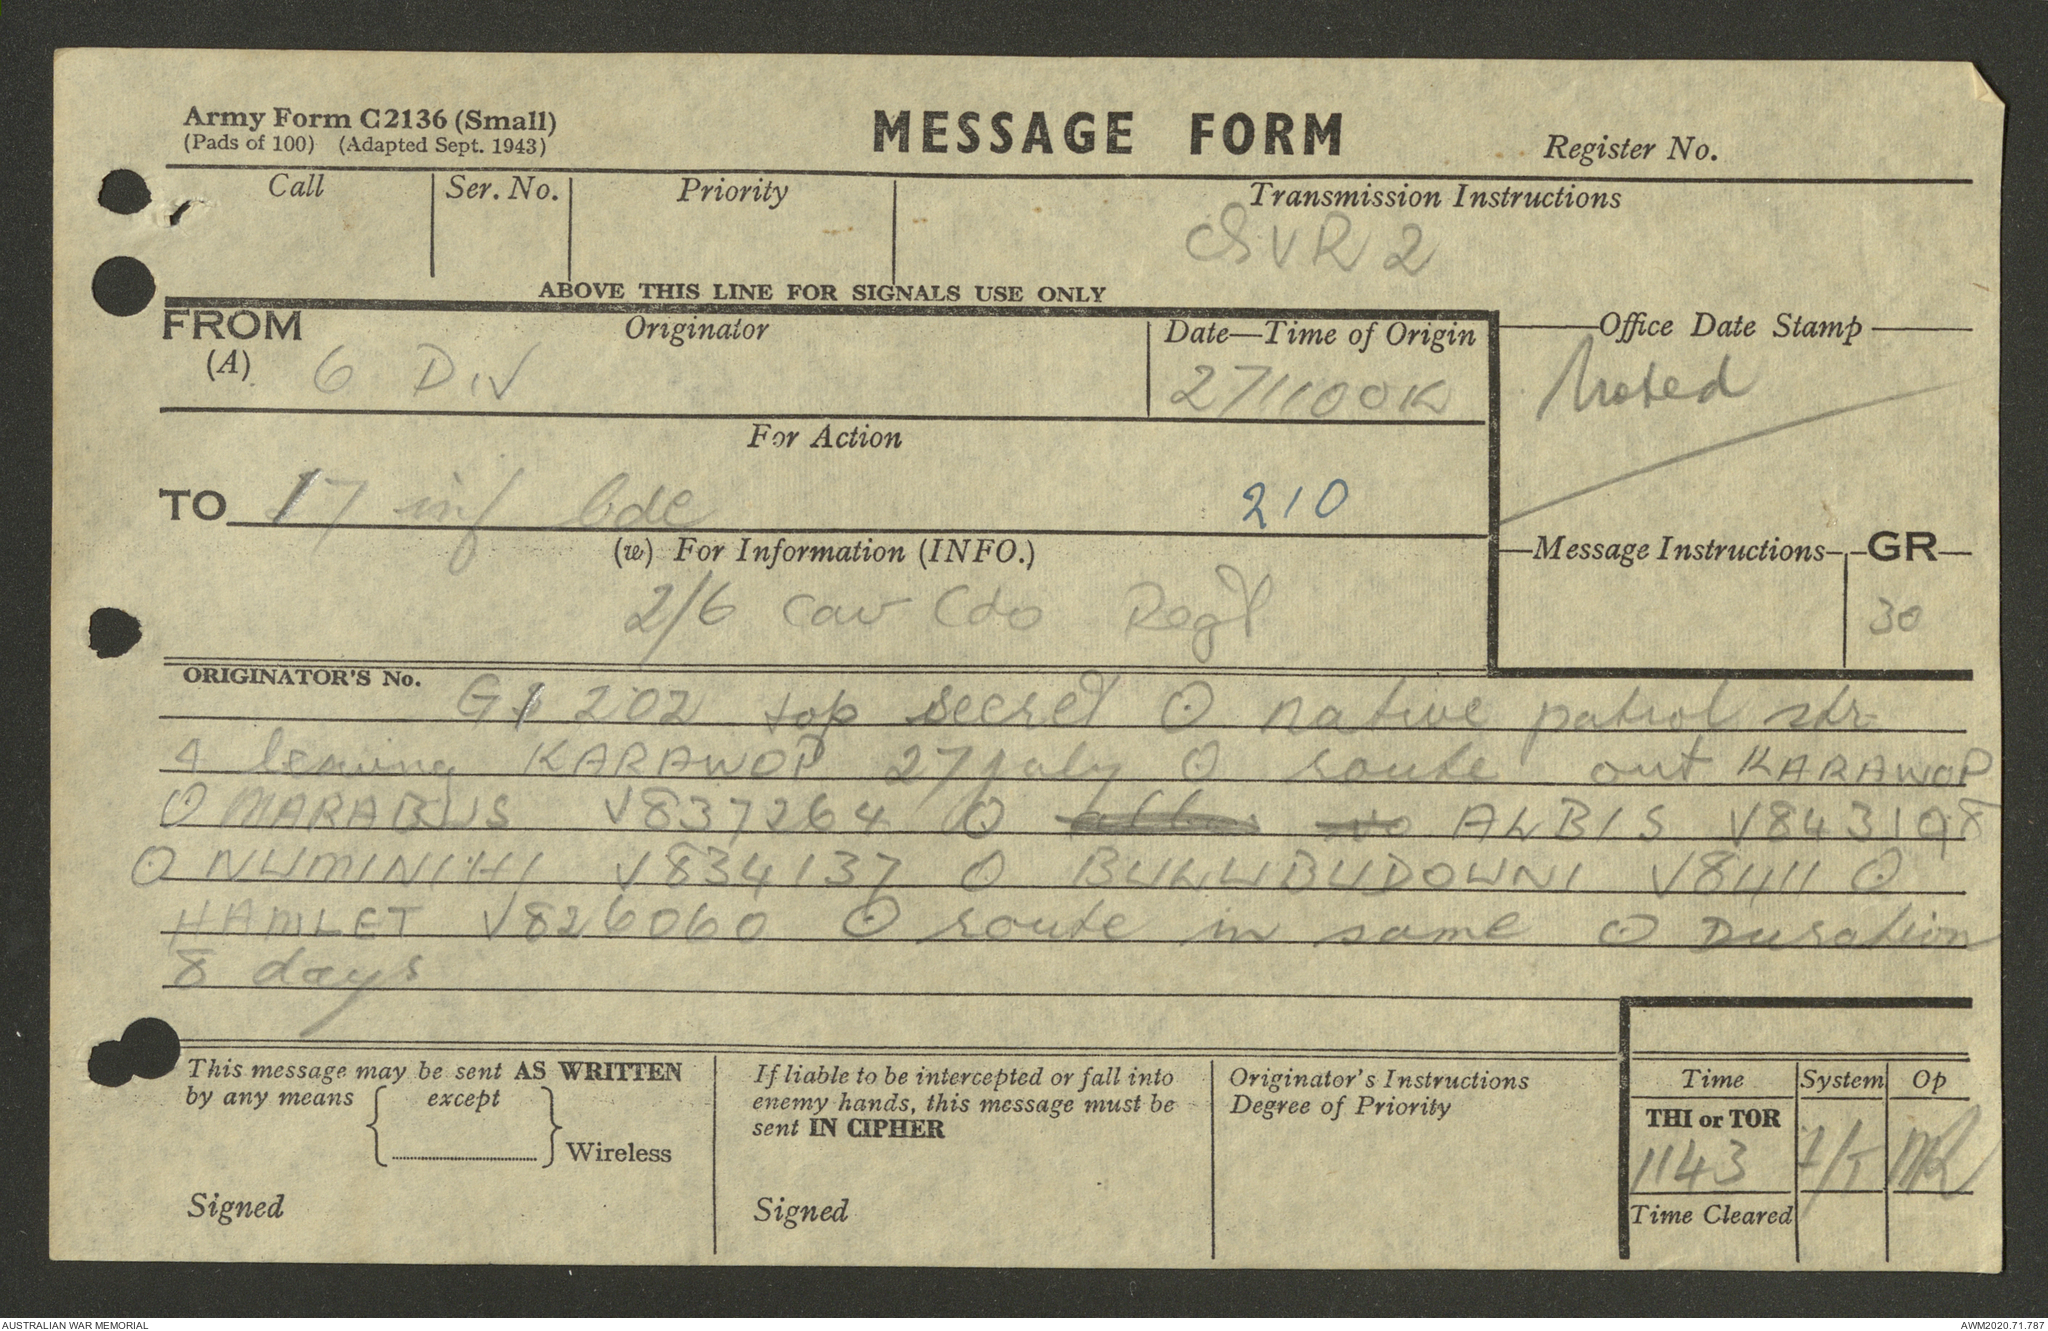 Army Form C2136 (Small)
(Pads of 100) (Adapted Sept. 1943)
MESSAGE FORM
Register No.
Call
Ser. No.
Priority
Transmission Instructions
SVR 2
ABOVE THIS LINE FOR SIGNALS USE ONLY
FROM
(A)
Originator
6 DIV
Date—Time of Origin
271100K
Office Date Stamp
Noted
For Action
TO 17 inf bde
210
(w) For Information (INFO.)
2/6 Cav Cdo Regt
Message Instructions
GR
30
ORIGINATOR'S No.
G 202 top secret O native patrol str
4 leaving KARAWOP 27 july O route out KARAWOP
O MARABUS V837264 O ALBIS V843198
O NUMINIHI V834137 O BULUBUDOWNI V8411 O
HAMLET V826060 O route in same O Duration
8 days
This message may be sent AS WRITTEN
by any means except
Wireless
Signed
If liable to be intercepted or fall into
enemy hands, this message must be
sent IN CIPHER
Signed
Originator's Instructions
Degree of Priority
Time
System
Op
THI or TOR
1143
Time Cleared
AUSTRALIAN WAR MEMORIAL
AWM2020.71.787